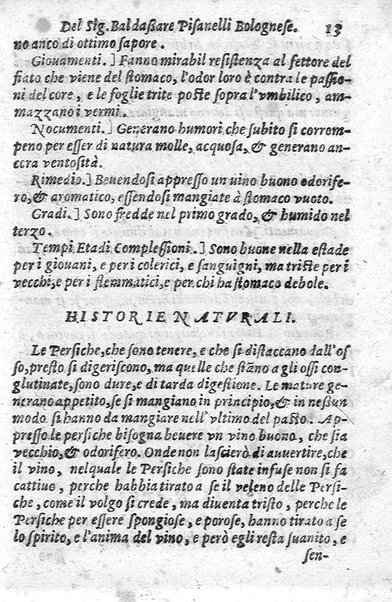 Del Sig. Baldaßare Pisanelli Bolognese. 13
no anco di ottimo sapore.
Giouamenti.] Fanno mirabil resistenza al fettore del
fiato che viene del stomaco, l'odor loro è contra le passio
ni del core, e le foglie trite poste sopra l'vmbilico, am-
mazzano i vermi.
Nocumenti.] Generano humori che subito si corrom-
peno per esser di natura molle, acquosa, & generano an-
ccra ventosità.
Rimedio.] Beuendosi appresso un uino buono odorife-
ro, & aromatico, essendosi mangiate à stomaco vuoto.
Gradi.] Sono fredde nel primo grado, & humido nel
terzo.
Tempi Etadi Complessioni.] Sono buone nella estade
per i giouani, e per i colerici, e sanguigni, ma triste per i
vecchi, e per i flemmatici, e per chi ha stomaco debole.
HISTORIE NATVRALI.
Le Persiche, che sono tenere, e che si distaccano dall'os
so, presto si digeriscono, ma quelle che stãno a gli ossi con-
glutinate, sono dure, e di tarda digestione. Le mature ge-
nerano appetito, se si mangiano in principio, & in neßun
modo si hanno da mangiare nell'vltimo del pasto. Ap-
presso le persiche bisogna beuere vn vino buono, che sia
vecchio, & odorifero. Onde non lascierò di auuertire, che
il vino, nel quale le Persiche sono state infuse non si fa
cattiuo, perche habbia tirato a se il veleno delle Persi-
che, come il volgo si crede, ma diuenta tristo, perche le
Persiche per essere spongiose, e porose, hanno tirato a se
lo spirito, e l'anima del vino, e però egli resta suanito, e
sen-